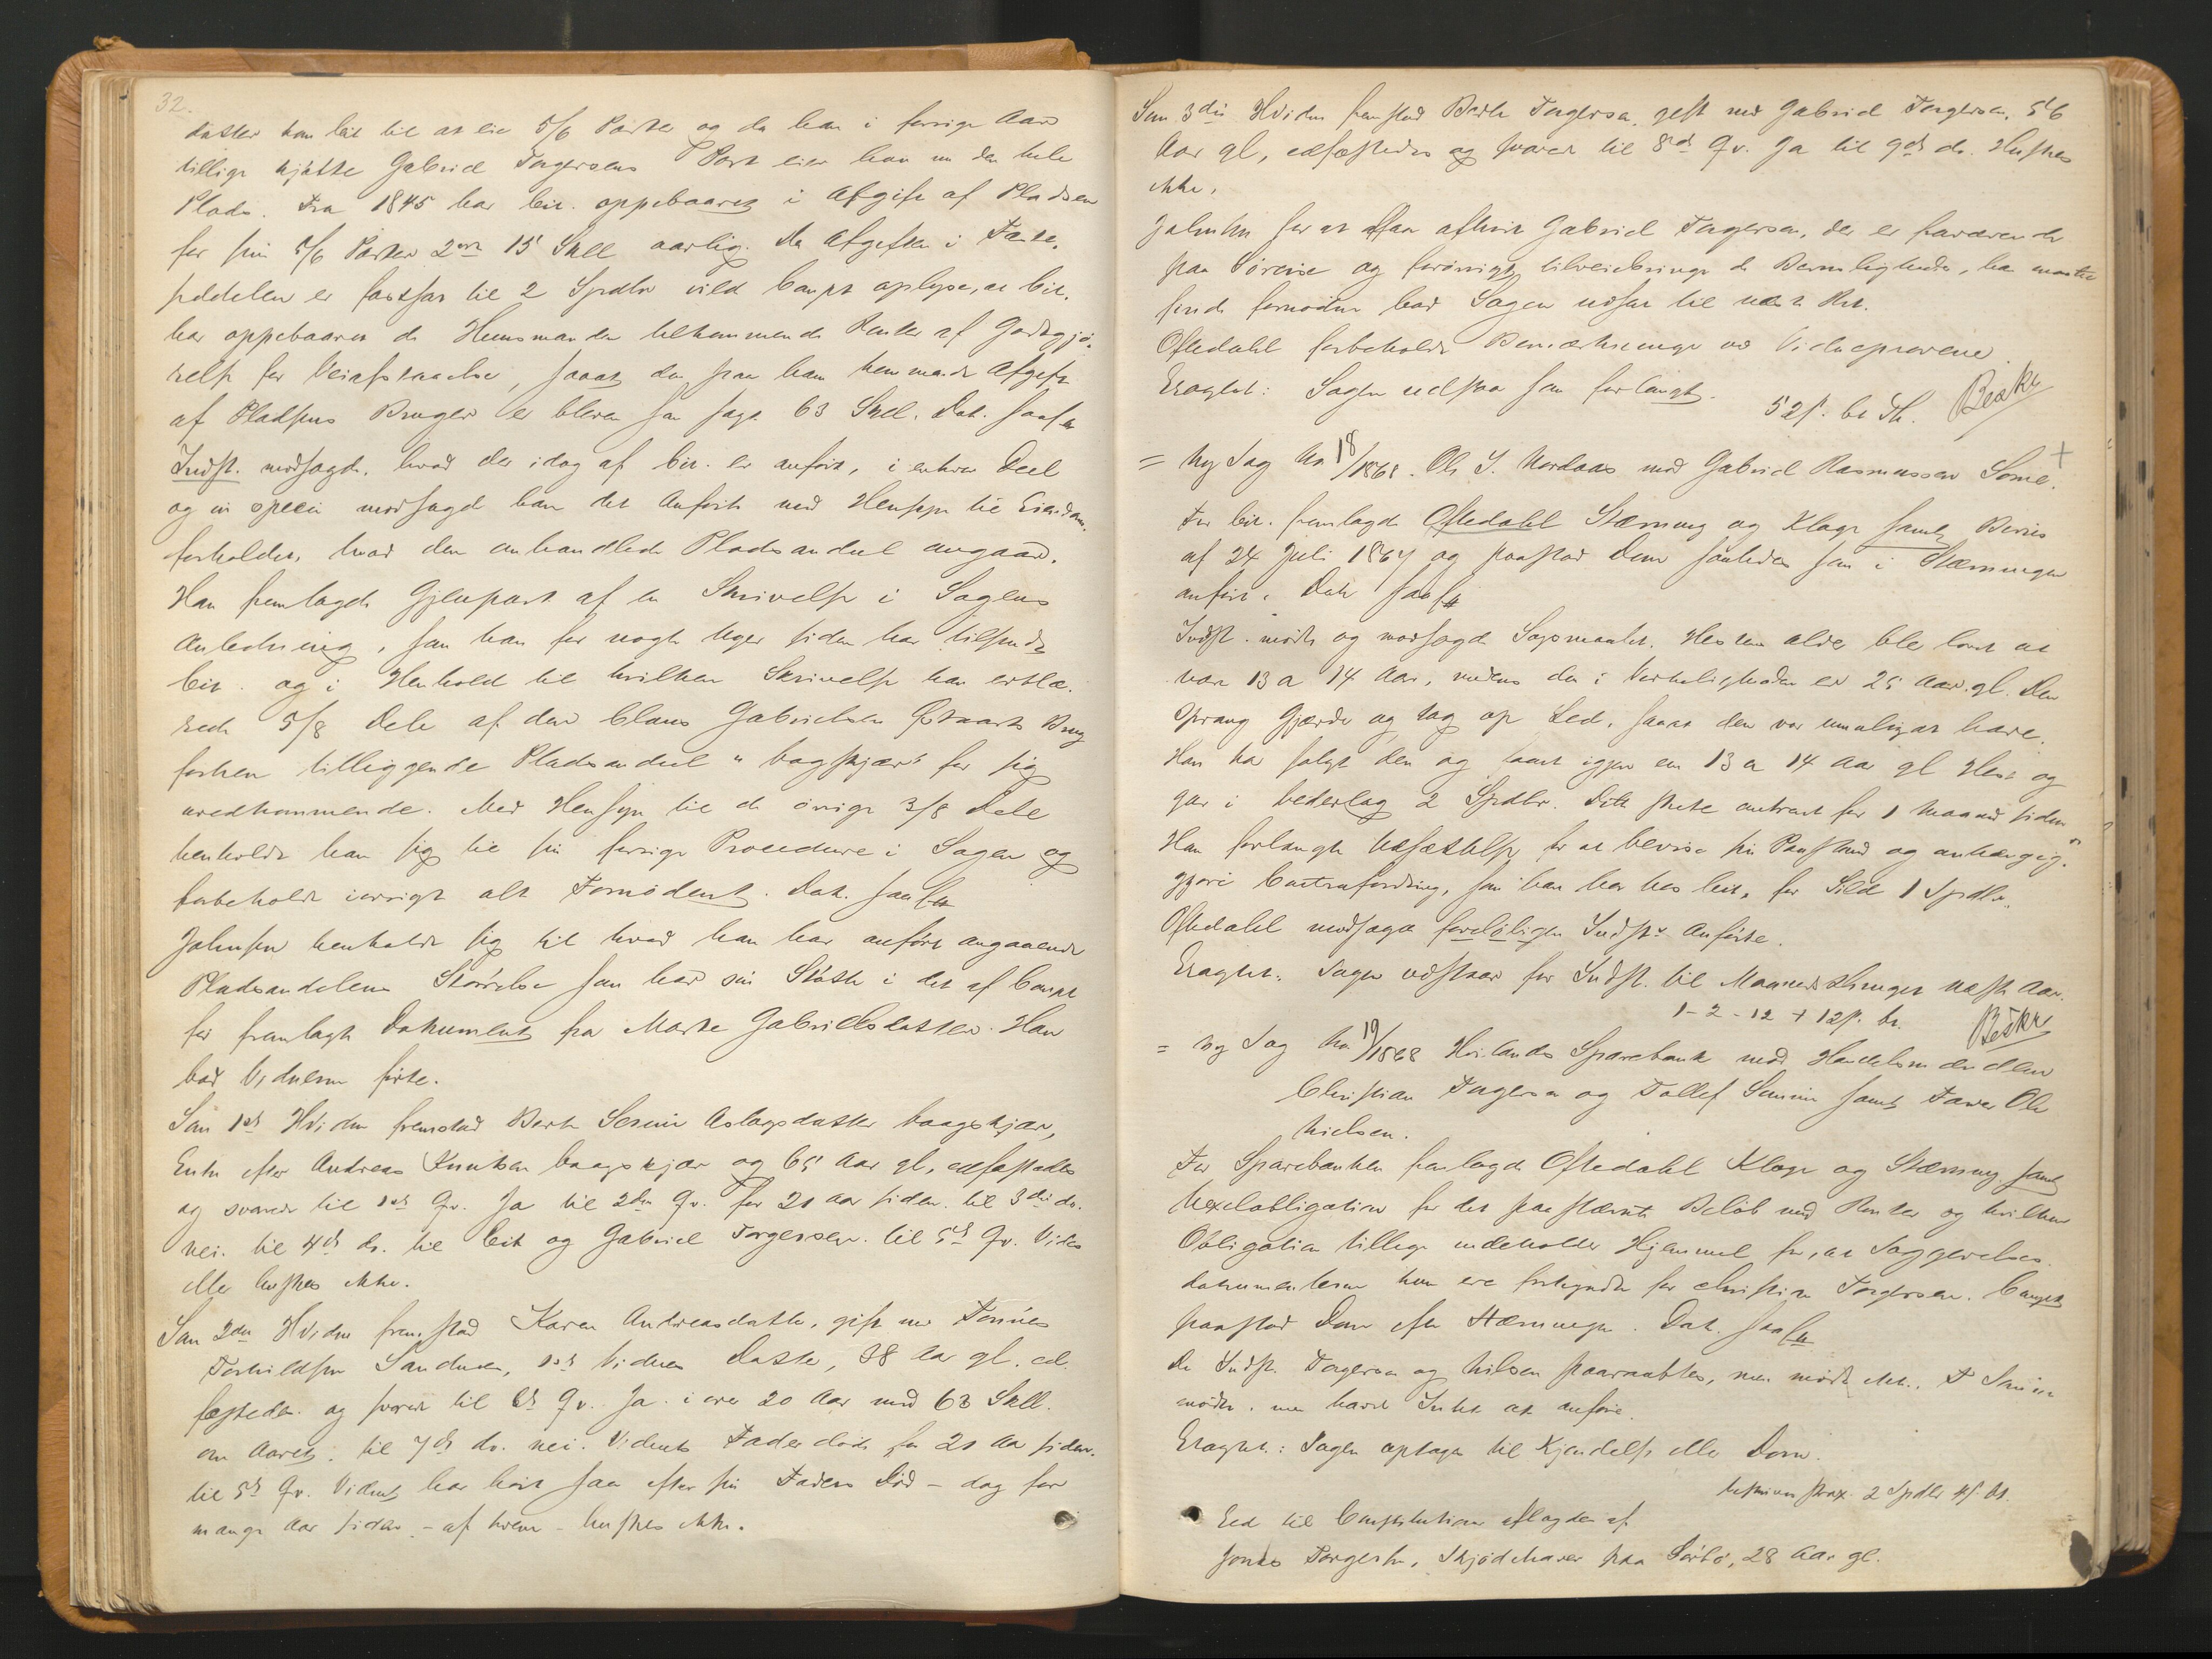 32.
datter kom Cit. til at eie 5/6 Parter og da han i forrige Aar
tillige kjøbte Gabriel Torgersens Part eier han nu den hele
Plads. Fra 1845 har Cit. oppebaaret i Afgift af Pladsen
for sin 5/6 Parter 2 ort 15 Skill aarlig. Da Afgiften i Fæste-
seddelen er fastsat til 2 Spdlr vild Compt oplyse, at Cit.
har oppebaaret de Huusmanden tilkommende Renter af Godtgjø-
relse for Veiafstaaelse, saaat den paa ham kommende Afgift
af Pladsens Bruger er bleven som sagt 63 Skill. Dok. saa
Indst. modsagde, hvad der idag af Cit. er anført, i enhver Deel
og in specie modsagde han det Anførte med Hensyn til Eiendoms-
forholdet, hvad den omhandlede Pladsandeel angaar.
Han fremlagde Gjenpart af en Skrivelse i Sagens
Anledning, som han for nogle Uger siden har tilsendt
Cit. og i Henhold til hvilken Skrivelse han erklæ-
rede 5/8 Dele af den Claus Gabrielsen Brug
forhen tilliggende Pladsandeel "Vaagskjær" for sig
uvedkommende. Med Hensyn til de øvrige 3/8 Dele
henholdt han sig til sin forrige Procedure i Sagen og
forbeholdt iøvrigt alt Fornødent. Dok. saa
Johnsen henholdt sig til hvad han har anført angaaende
Pladsandelens Størrelse som har sin Støtte i det af Compt
før fremlagte Dokument fra Marte Gabrielsdatter. Han
bad Vidnerne førte.
Som 1ste Hvidne fremstod Berte Serine Aslagsdatter Vaagskjær,
Enke efter Andreas Knutsen Vaagskjær og 65 Aar gl, edfæstedes
og svarede til 1ste Qv. Ja til 2det Qv. for 21 Aar siden. til 3die do.
nei. til 4de do. til Cit og Gabriel Torgersen. til 5te Qv. Vides
eller huskes ikke.
Som 2det Hvidne fremstod Karen Andreasdatter, gift med Tønnes
Torkildsen Sanduen, 1ste Vidnes Datter, 38 Aar gl. ed-
fæstedes og svarede til Qv. Ja. i over 20 Aar med 63 Skill.
om Aaret. til 7de do. nei. Vidnets Fader døde for 21 Aar siden.
til 5te Qv. Vidnet har hørt saa efter sin Faders Død – dog for
mange Aar siden – af hvem – huskes ikke.
Som 3die Hvidne fremstod Berte Torgersen, gift med Gabriel Torgersen, 56
Aar gl, edfæstedes og svarede til 8de Qv. Ja til 9de do. Huskes
ikke.
Johnsen for at faa afhørt Gabriel Torgersen, der er fraværende
paa Søreise og forøvrigt tilveiebringe de Beviisligheder, han maatte
finde fornødne bad Sagen udsat til næste Ret.
Oftedahl forbeholdt Bemærkninger ved Vidneprovene.
Eragtet: Sagen udstaar som forlangt.
52 s. bet Th. Beskr
= Ny Sag No 18/1868. Ole S. Nordaas mod Gabriel Rasmussen Sømme. +
For Cit. fremlagde Oftedahl Stævning og Klage samt Beviis
af 24 Juli 1867 og paastod Dom saaledes som i Stævningen
anført. Dok saa
Indst. mødte og modsagde Søgsmaalet. Hestens Alder blev lovet at
være 13 a 14 Aar, medens den i Virkeligheden er 25 Aar gl. Den
sprang Gjærder og tog op Led, saaat den var umulig at have.
Han har solgt den og faaet igjen en 13 a 14 Aar gl Hest og
gav i Vederlag 2 Spdlr. Dette skete omtrent for 1 Maaned siden
Han forlangte Udsættelse for at bevise sin Paastand og anhængig-
gjøre Contrafordring, som han har hos Cit. for Sild 1 Spdlr.
Oftedahl modsagde foreløbigen Indst.s Anførte.
Eragtet: Sagen udstaar for Indst. til Mannerdthinget næste Aar.
1-2-12 + 12 s. bet. Beskr
= Ny Sag No 19/1868 Høilands Sparebank mod Handelsmændene
Christian Torgersen og Tollef Sømme samt Farver Ole
Nielsen.
For Sparebanken fremlagde Oftedahl Klage og Stævning samt
Vexelobligation for det paastævnte Beløb med Renter og hvilken
Obligation tillige indeholder Hjemmel for, at Søggivelses-
dokumenterne kun ere forkyndte for Christian Torgersen. Compt
paastod Dom efter Stævningen. Dok. saa
De Indst. Torgersen og Nilsen paaraabtes, men mødte ikke. T Sømme
mødte, men havde Intet at anføre.
Eragtet: Sagen optages til Kjendelse eller Dom.
beskriven strax. 2 Spdlr 4 s. bet.
Eed til Constitutionen aflagdes af
Jonas Torgersen, Skjødehaver paa Sørbø, 28 Aar gl.